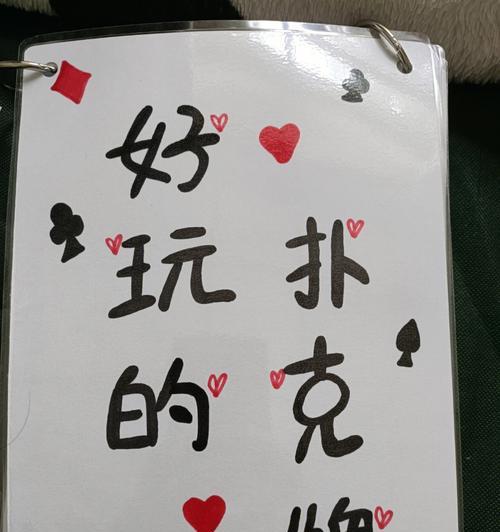 好玩的
扑克